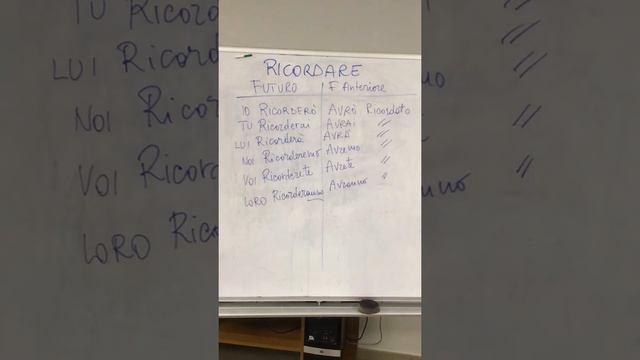 RICORDARE
FUTURO F Anteriore
IO RICORDERÒ AVRÒ Ricordato
TU Ricorderai AVRAI //
LUI Ricorderà AVRÀ //
NOI Ricorderemo Avremo //
VOI Ricorderete Avrete //
LORO Ricorderanno Avranno //